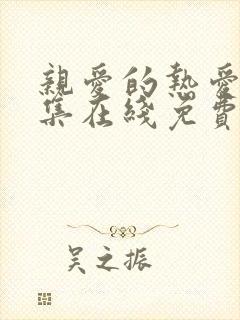 親愛的熱愛
集在綫免費
吴之振